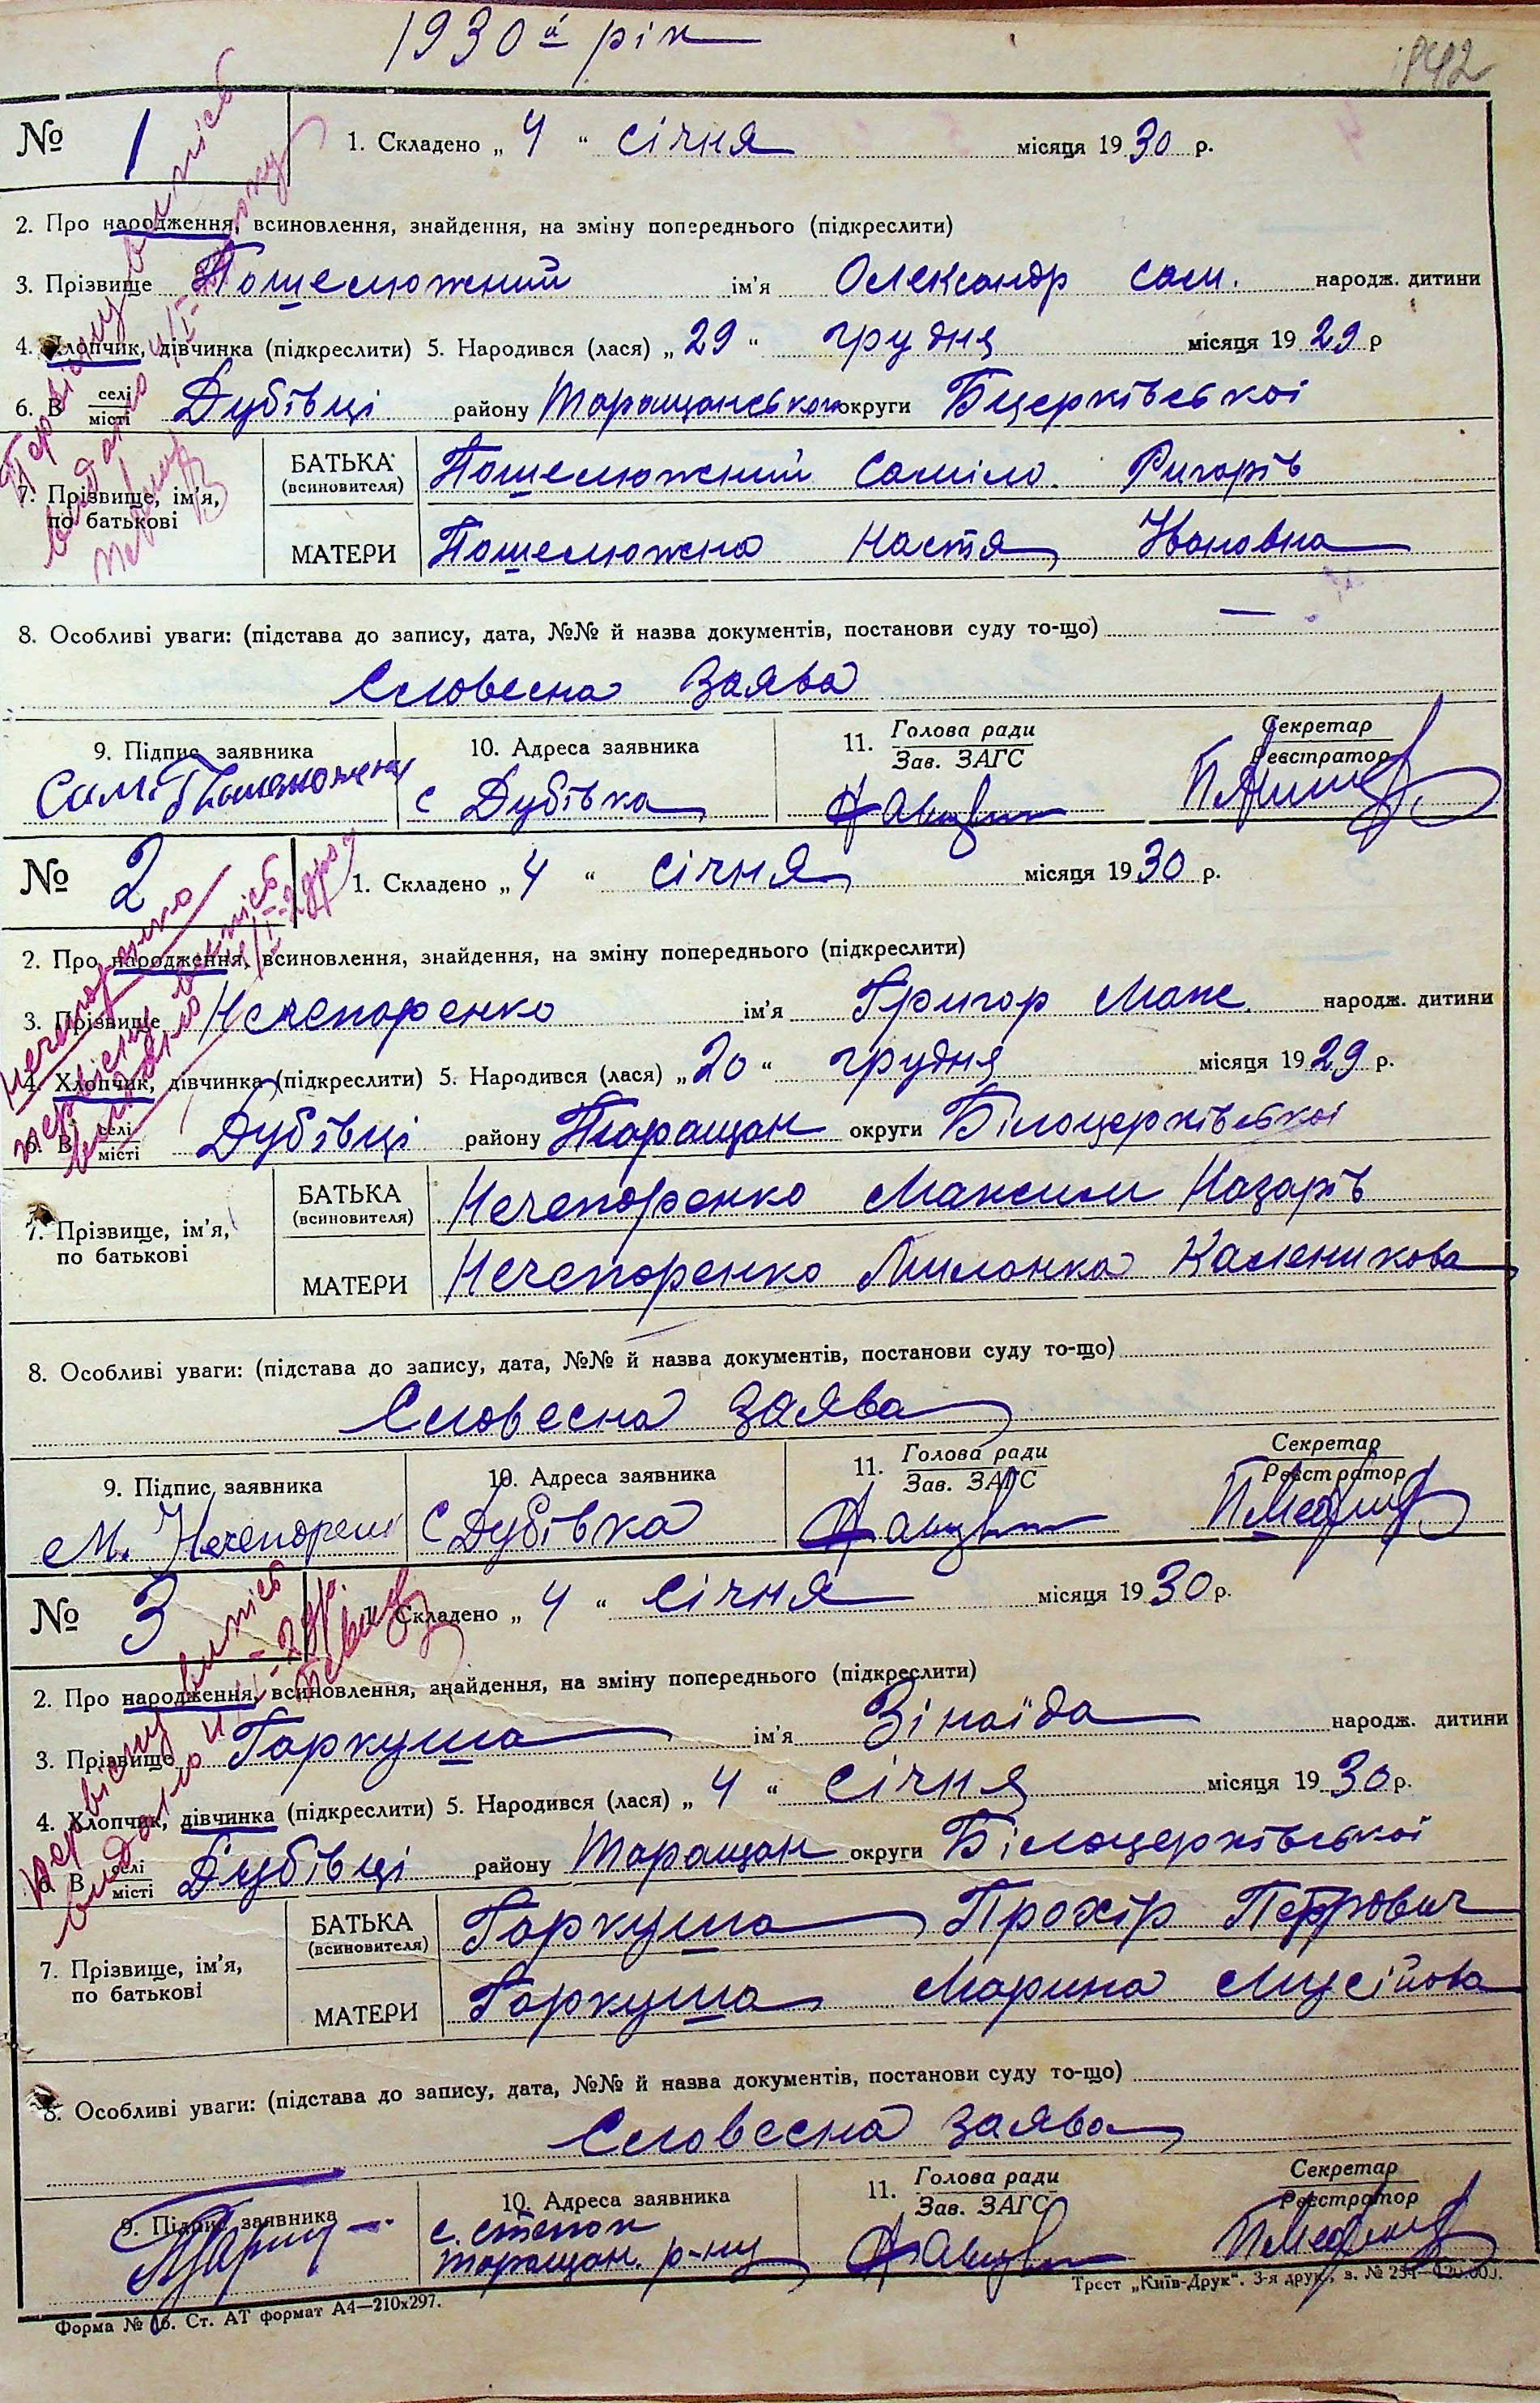 1930й рік
№ 1
1. Складено „ 4 “ січня місяця 1930 р.
2. Про народження, всиновлення, знайдення, на зміну попереднього (підкреслити)
3. Прізвище Пошеможний ім'я Олександр Сам. народж. дитини
4. Хлопчик, дівчинка (підкреслити) 5. Народився (лася) „ 29 “ грудня місяця 1929 р
6. В селі місті Дубівці району Таращанського округи Бцерківської
7. Прізвище, ім'я, по батькові
БАТЬКА (всиновителя) Пошеможний Саміло Ригорів
МАТЕРИ Пошеможна Настя Ивановна
8. Особливі уваги: (підстава до запису, дата, №№ й назва документів, постанови суду то-що) —
Словесна заява
9. Підпис заявника 10. Адреса заявника 11. Голова ради Зав. ЗАГС Секретар Реєстратор
с Дубівка
№ 2
1. Складено „ 4 “ січня місяця 1930 р.
2. Про народження, всиновлення, знайдення, на зміну попереднього (підкреслити)
3. Прізвище Нечепоренко ім'я Григор Мак. народж. дитини
4. Хлопчик, дівчинка (підкреслити) 5. Народився (лася) „ 20 “ грудня місяця 1929 р.
6. В селі місті Дубівці району Таращан округи Білоцерківської
7. Прізвище, ім'я, по батькові
БАТЬКА (всиновителя) Нечепоренко Максим Назарів
МАТЕРИ Нечепоренко Милонка Каленикова
8. Особливі уваги: (підстава до запису, дата, №№ й назва документів, постанови суду то-що)
Словесна заява
9. Підпис заявника 10. Адреса заявника 11. Голова ради Зав. ЗАГС Секретар Реєстратор
М. Нечепорен с Дубівка
№ 3
1. Складено „ 4 “ січня місяця 1930 р.
2. Про народження, всиновлення, знайдення, на зміну попереднього (підкреслити)
3. Прізвище Гаркуша ім'я Зінаїда народж. дитини
4. Хлопчик, дівчинка (підкреслити) 5. Народився (лася) „ 4 “ січня місяця 1930 р.
6. В селі місті Дубівці району Таращан округи Білоцерківської
7. Прізвище, ім'я, по батькові
БАТЬКА (всиновителя) Гаркуша Прохір Петрович
МАТЕРИ Гаркуша Марина Мусійова
8. Особливі уваги: (підстава до запису, дата, №№ й назва документів, постанови суду то-що)
Словесна заява
9. Підпис заявника 10. Адреса заявника 11. Голова ради Зав. ЗАГС Секретар Реєстратор
с. Степок
Таращан. р-ну
Форма № 16. Ст. АТ формат А4—210х297.
Трест „Київ-Друк“. 3-я друк., з. №